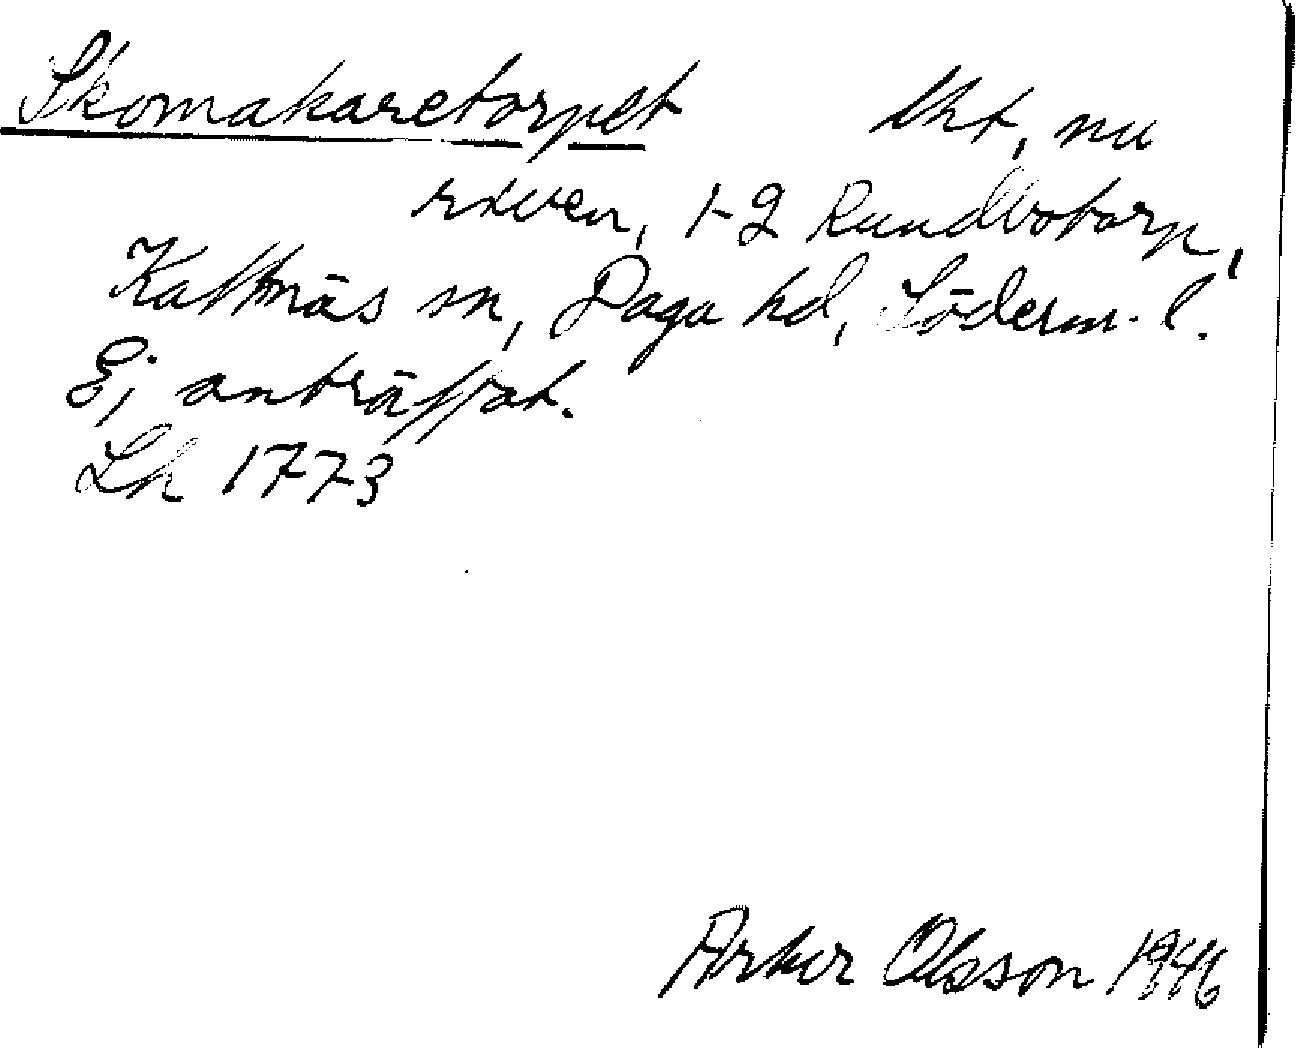 Skomakaretorpet lht, nu
riven, 1-2 Rundbotorp,
Kattnäs sn, Daga hd, Söderm. l.
Ej anträffat.
Lh 1773
Artur Olsson 1946